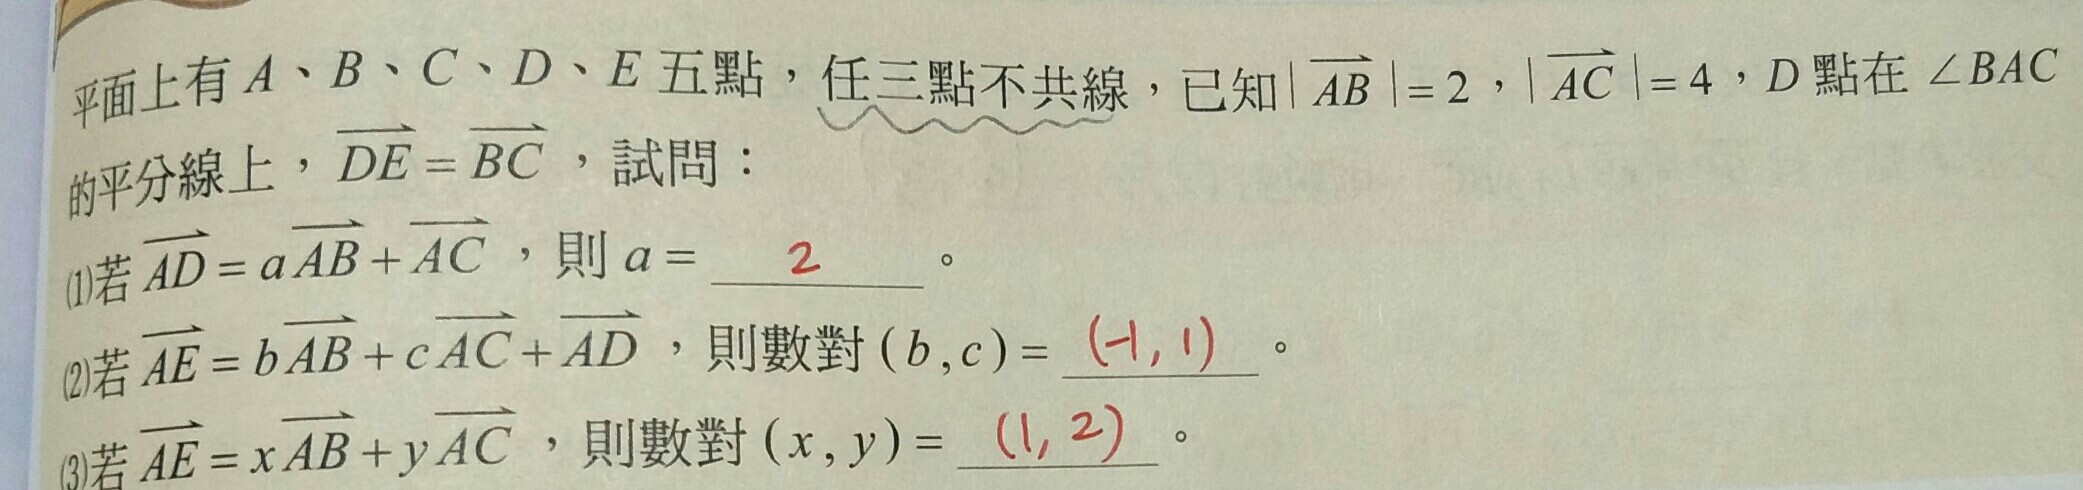 平面上有 A、B、C、D、E 五點，任三點不共線，已知|$\overrightarrow{AB}$|=2，|$\overrightarrow{AC}$|=4，D 點在 ∠BAC
的平分線上，$\overrightarrow{DE}$=$\overrightarrow{BC}$，試問：
⑴若 $\overrightarrow{AD}$=a$\overrightarrow{AB}$+$\overrightarrow{AC}$，則 a= 2 。
⑵若 $\overrightarrow{AE}$=b$\overrightarrow{AB}$+c$\overrightarrow{AC}$+$\overrightarrow{AD}$，則數對(b,c)= (-1, 1) 。
⑶若 $\overrightarrow{AE}$=x$\overrightarrow{AB}$+y$\overrightarrow{AC}$，則數對(x,y)= (1, 2) 。